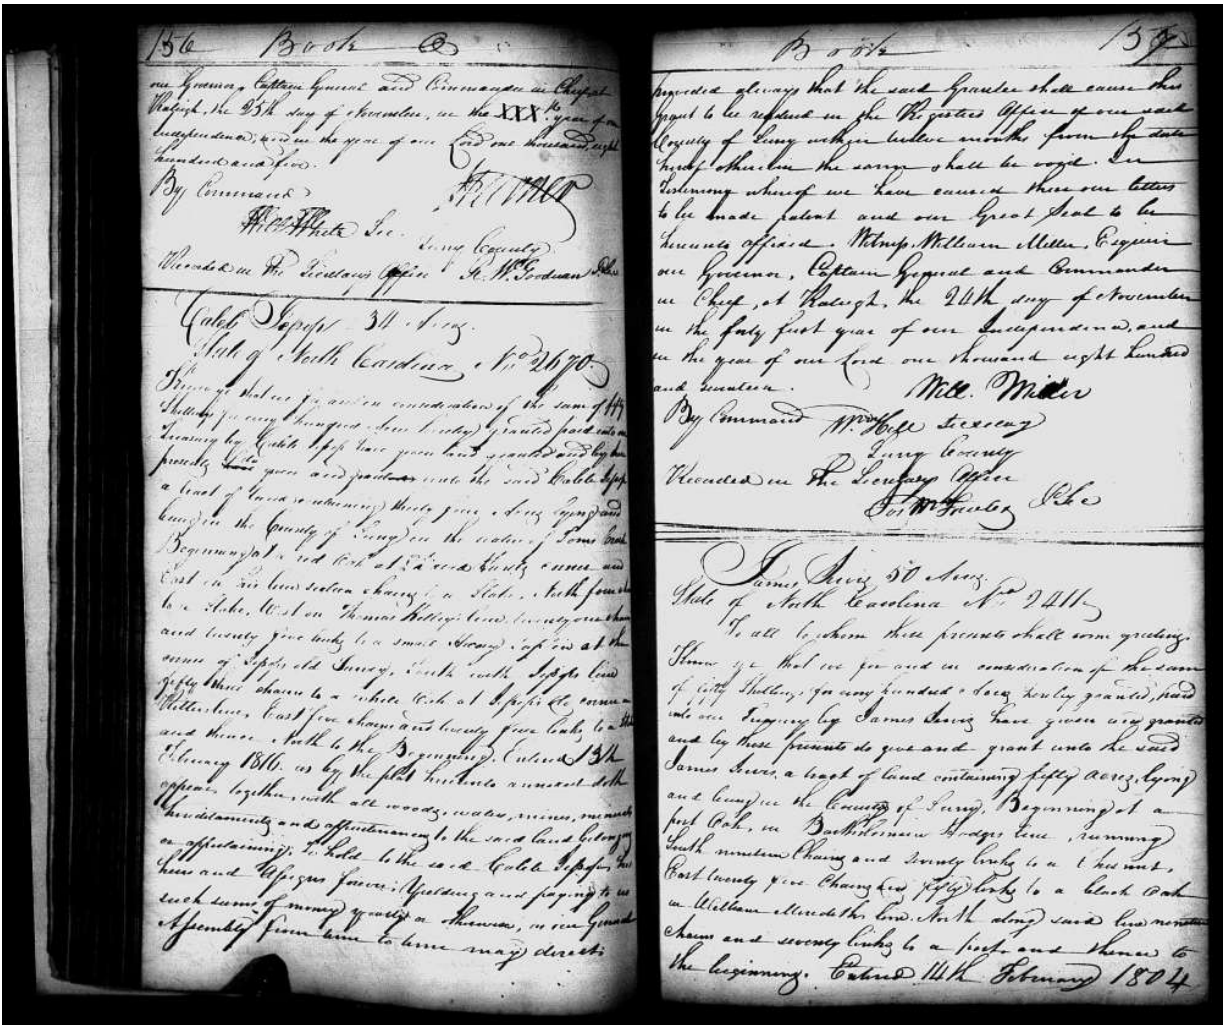 156 Book
our Governor, Captain General and Commander in Chief at
Raleigh, the 25th day of November, in the XXXth year of our
Independence, and in the year of our Lord one thousand, eight
hundred and five.
By Command
White Sec.
Surry County
Recorded in The Secretary's Office W. Goodman P. Sec
Caleb Jessop 34 Acres.
State of North Carolina No. 2670.
Know ye that we for and in consideration of the sum of fifty
Shillings for every hundred Acres hereby granted paid into our
Treasury by Caleb Jessop have given and granted and by these
presents do give and grant unto the said Caleb Jessop
a tract of Land containing thirty four Acres lying and
being in the County of Surry on the waters of Toms Creek
Beginning at a red Oak at corner and
East in his line sixteen chains to a Stake, North four
to a Stake, West on Thomas Kelley's line twenty one chains
and twenty five links to a small at the
corner of Jessops old Survey, South with Jessops line
fifty three chains to a white Oak at Jessops corner
East five chains and twenty five links to a Stake
and thence North to the Beginning. Entered 13th
February 1816. as by the plat hereunto annexed doth
appear, together, with all woods, waters, mines, minerals
hereditaments and appurtenances to the said land belonging
or appertaining; To hold to the said Caleb Jessop, his
heirs and Assigns forever; Yielding and paying to us
such sums of money yearly or otherwise, as our General
Assembly from time to time may direct:
Book 157
provided always that the said Grantee shall cause this
grant to be in the Registers Office of our said
County of Surry within twelve months from the date
hereof otherwise the same shall be void. In
Testimony whereof we have caused these our letters
to be made patent and our Great Seal to be
hereunto affixed. Witness, William Miller, Esquire
our Governor, Captain General and Commander
in Chief, at Raleigh, the 24th day of November
in the forty first year of our Independence, and
in the year of our Lord one thousand eight hundred
and seventeen. Will. Miller
By Command Wm Hill Secretary
Surry County
Recorded in The Secretary's Office
P. Sec
James 50 Acres.
State of North Carolina No. 2411
To all to whom these presents shall come greeting.
Know ye that we for and in consideration of the sum
of fifty Shillings for every hundred Acres hereby granted, paid
into our Treasury by James have given and granted
and by these presents do give and grant unto the said
James a tract of land containing fifty acres, lying
and being in the County of Surry, Beginning at a
post Oak, in Bartholomew Hodges line, running
South nineteen Chains and seventy links to a Chesnut,
East twenty five Chains and fifty links to a black Oak
in William Merediths line, North along said line nineteen
chains and seventy links to a post and thence to
the beginning. Entered 14th February 1804